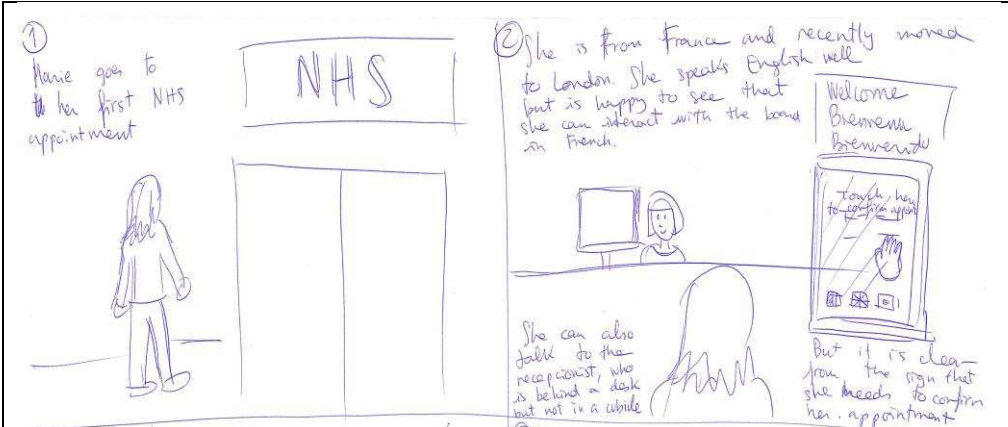 1
Marie goes to
her first NHS
appointment
NHS
2
She is from France and recently moved
to London. She speaks English well
but is happy to see that
she can interact with the board
in French.
Welcome
Bienvenu
Bienvenido
touch here
to confirm appoin
She can also
talk to the
recepcionist, who
is behind a desk
but not in a cubicle
But it is clear
from the sign that
she needs to confirm
her appointment